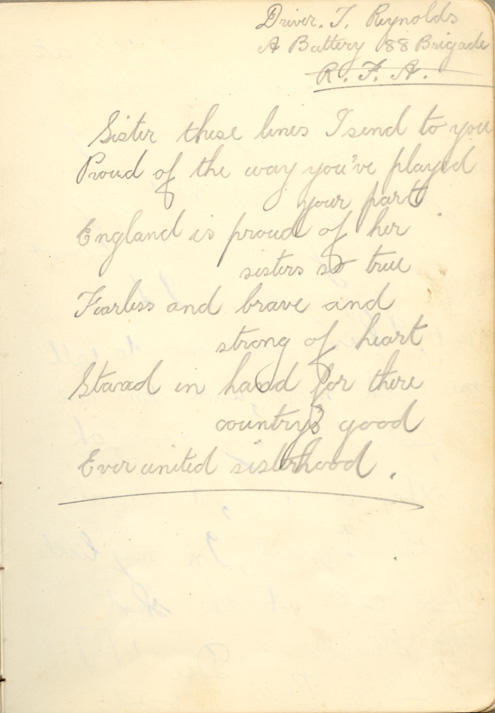 Driver. T. Reynolds
A Battery 88 Brigade
R. F. A.
Sister these lines I send to you
Proud of the way you've played
your part
England is proud of her
sisters so true
Fearless and brave and
strong of heart
Stand in hand for there
country's good
Ever united sisterhood.